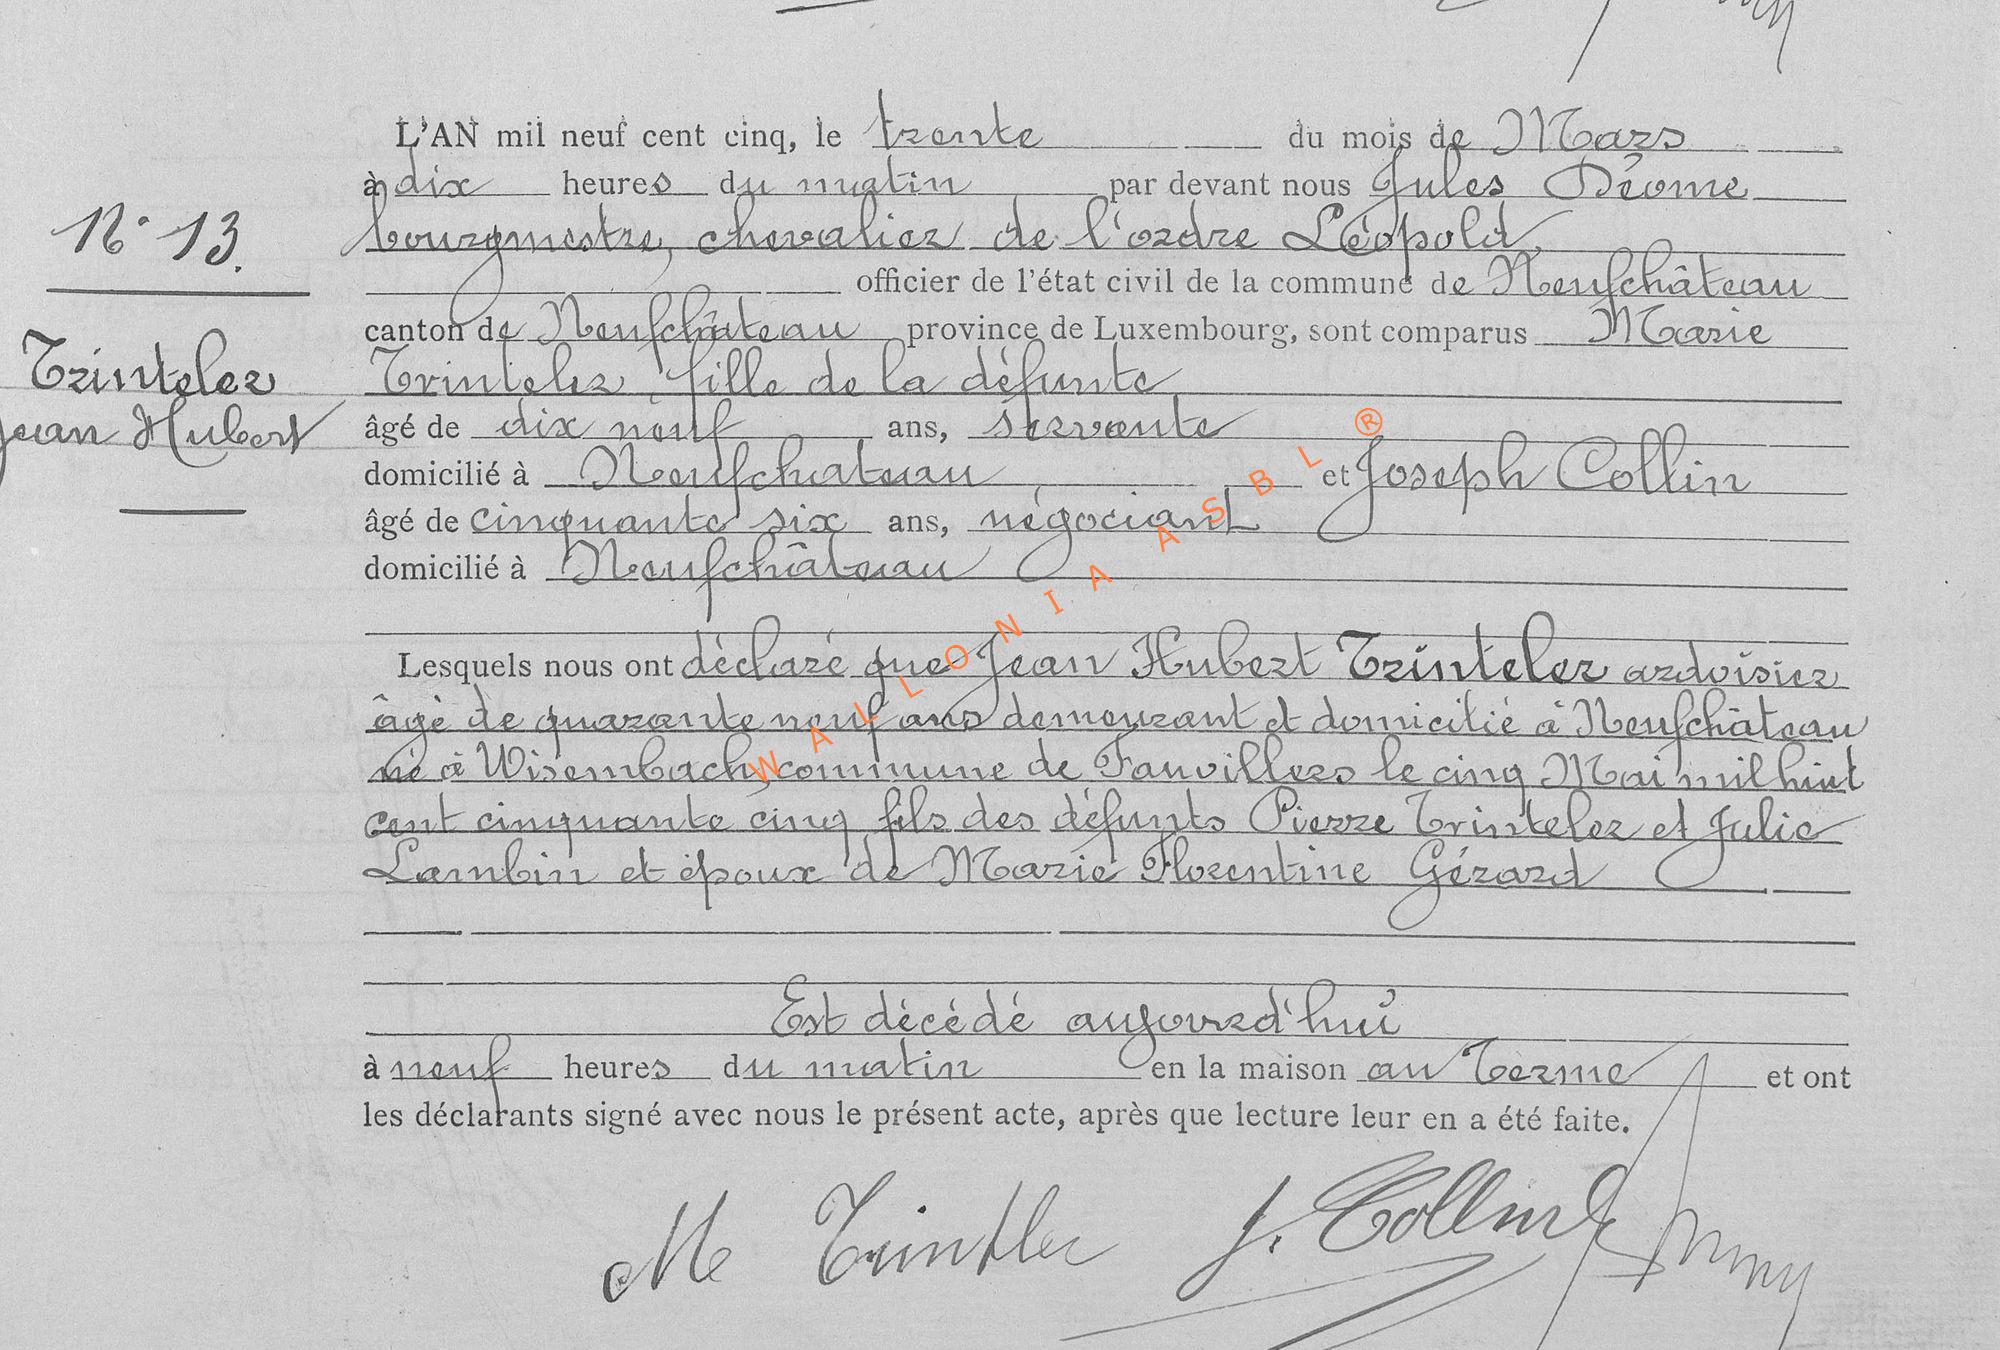 L'AN mil neuf cent cinq, le trente du mois de Mars
à dix heures du matin par devant nous Jules Déome
bourgmestre, chevalier de l'ordre Léopold,
officier de l'état civil de la commune de Neufchâteau
canton de Neufchâteau province de Luxembourg, sont comparus Marie
Trinteler fille de la défunte
âgé de dix neuf ans, servante
domicilié à Neufchateau et Joseph Collin
âgé de cinquante six ans, négociant
domicilié à Neufchâteau
N° 13.
Trinteler
Jean Hubert
Lesquels nous ont déclaré que Jean Hubert Trinteler ardoisier
âgé de quarante neuf ans demeurant et domicilié à Neufchâteau
né à Wisembach, commune de Fauvillers le cinq Mai mil huit
cent cinquante cinq fils des défunts Pierre Trinteler et Julie
Lambin et époux de Marie Florentine Gérard
Est décédé aujourd'hui
à neuf heures du matin en la maison au Terme et ont
les déclarants signé avec nous le présent acte, après que lecture leur en a été faite.
M Trintler J. Collin
WALLONIA ASBL ®